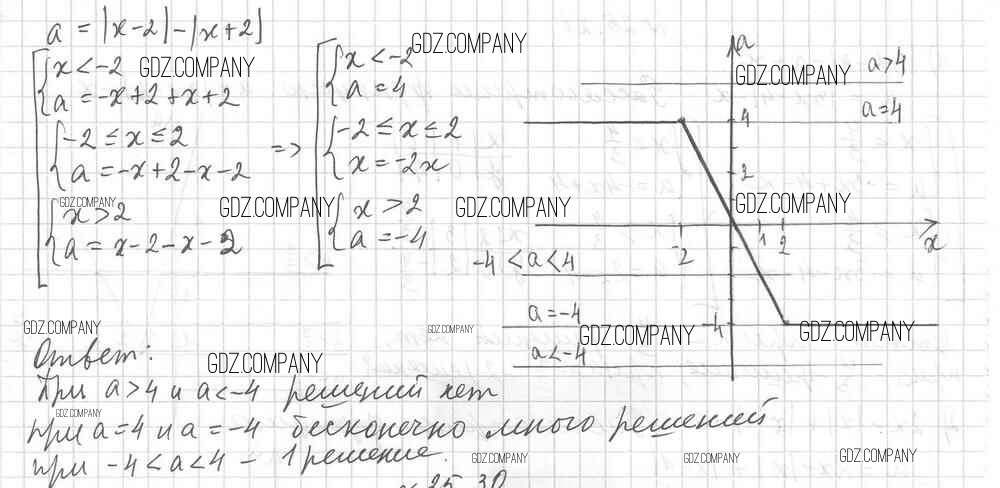 a = |x-2|-|x+2|
x < -2 GDZ.COMPANY
a = -x+2+x+2
-2 ≤ x ≤ 2
a = -x+2-x-2
GDZ.COMPANY
x > 2
a = x-2-x-2
=>
GDZ.COMPANY
x < -2
a = 4
-2 ≤ x ≤ 2
x = -2x
GDZ.COMPANY
x > 2
a = -4
GDZ.COMPANY
a
GDZ.COMPANY a>4
a=4
4
2
GDZ.COMPANY
-2 1 2 x
-4 < a < 4
a = -4
GDZ.COMPANY -4 GDZ.COMPANY
a < -4
GDZ.COMPANY
GDZ.COMPANY
Ответ:
GDZ.COMPANY
При a>4 и a<-4 решений нет
GDZ.COMPANY
при a=4 и a=-4 бесконечно много решений
при -4<a<4 - 1 решение.
GDZ.COMPANY GDZ.COMPANY GDZ.COMPANY
25.30